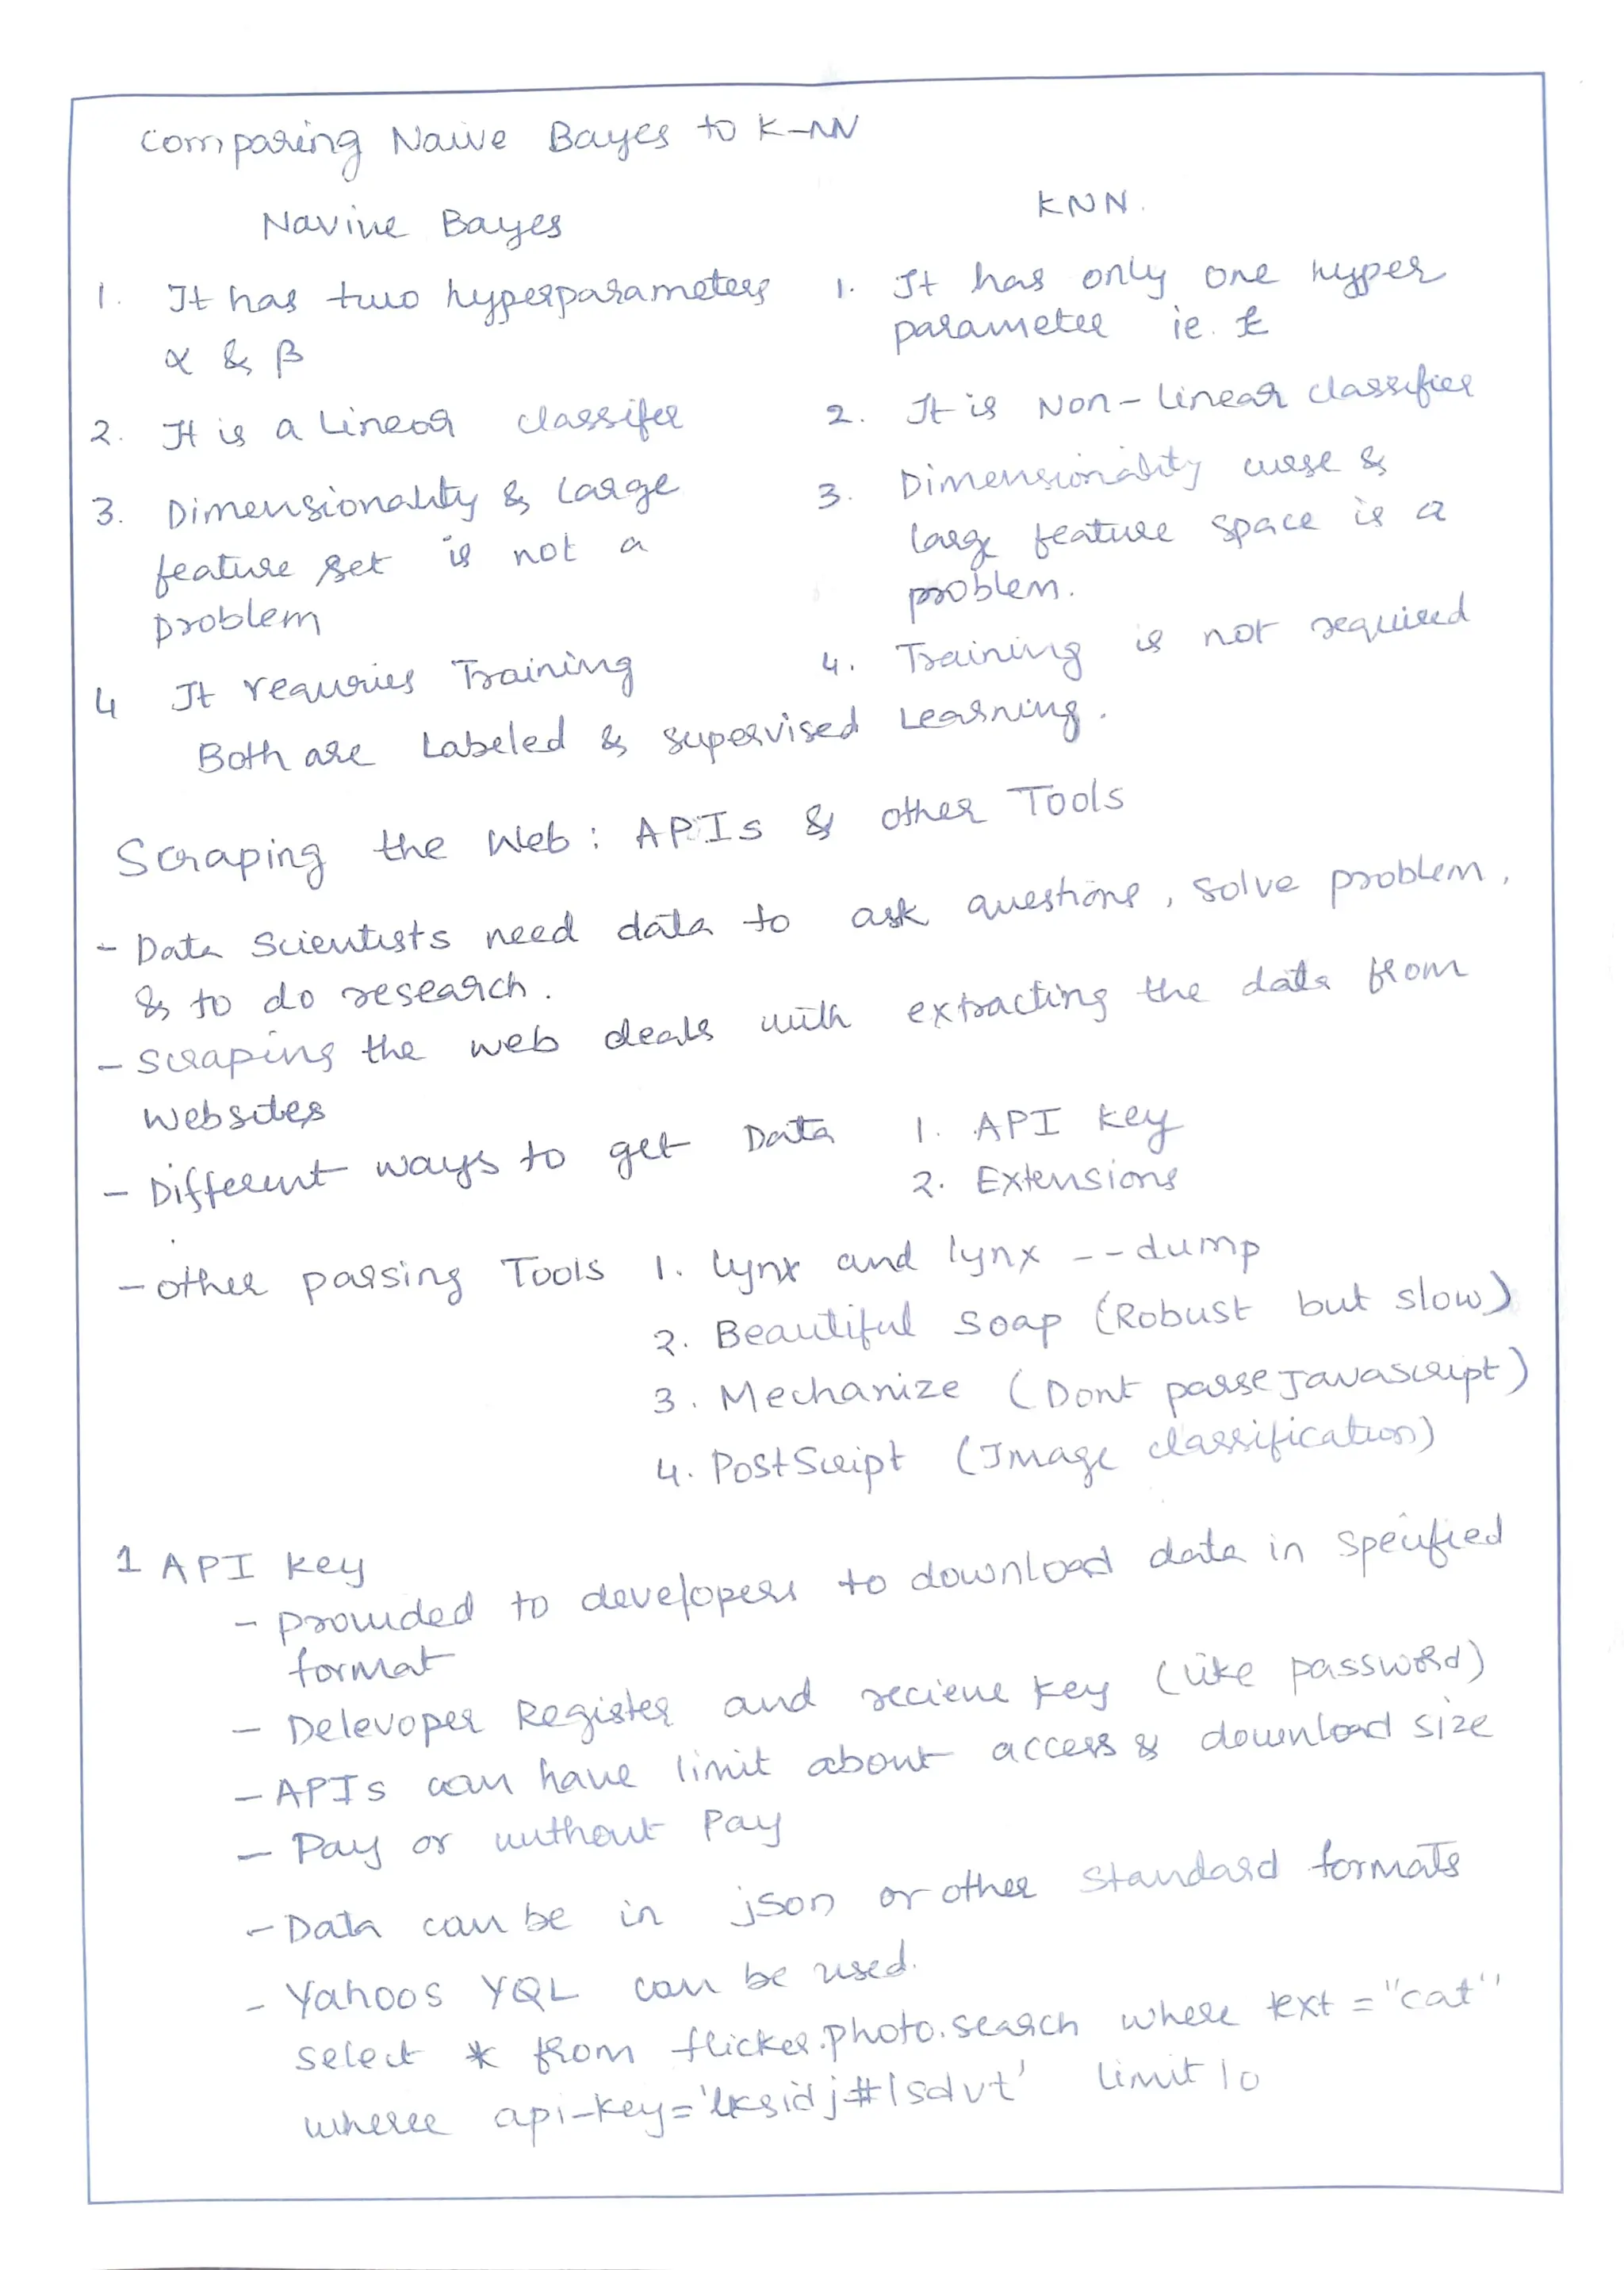 Comparing Naive Bayes to K-NN
Navine Bayes
KNN.
1. It has two hyperparameters
α & β
2. It is a Linear classifer
3. Dimensionality & large
feature set is not a
problem
4 It requries Training
1. It has only one hyper
parameter ie. k
2. It is Non-Linear classifier
3. Dimensionality curse &
large feature space is a
problem.
4. Training is not required
Both are Labeled & supervised Learning.
Scraping the Web: APIs & other Tools
- Data Scientists need data to ask questions, solve problem,
& to do research.
- Scraping the web deals with extracting the data from
websites
- Different ways to get Data 1. API key
2. Extensions
- other parsing Tools 1. lynx and lynx --dump
2. Beautiful Soap (Robust but slow)
3. Mechanize (Dont parse Javascript)
4. PostScript (Image classification)
1 API key
- provided to developers to download data in specified
format
- Delevoper Register and recieve key (like password)
- APIs can have limit about access & download size
- Pay or without Pay
- Data can be in json or other standard formats
- Yahoos YQL can be used.
select * from flicker.photo.search where text = "cat"
where api-key='lksidj#lsdvt' limit 10